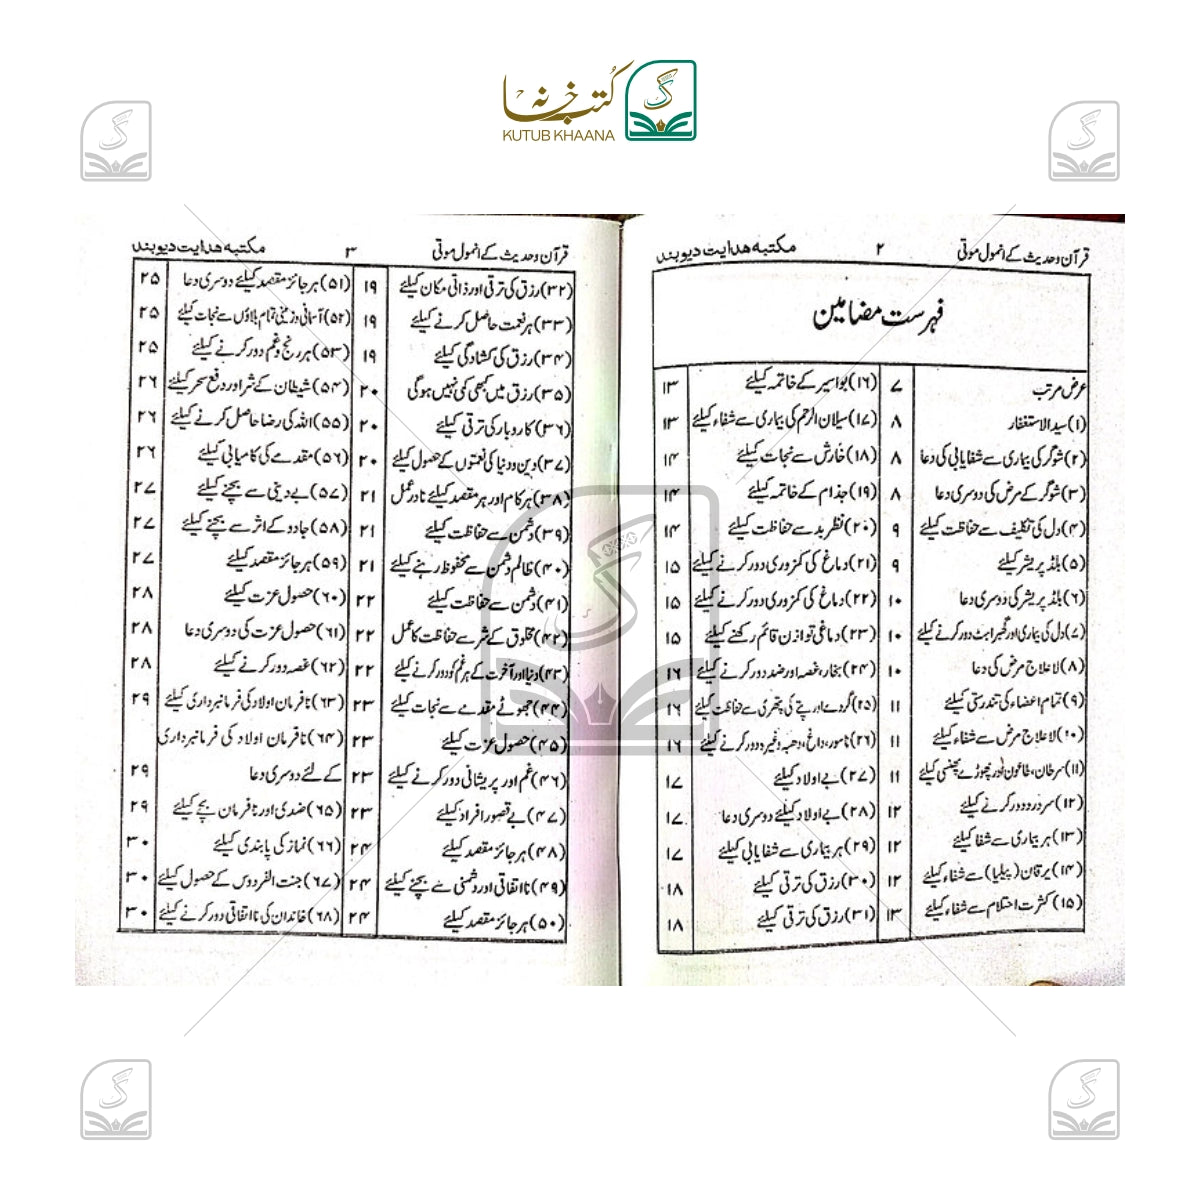 کتب خانہ
KUTUB KHAANA
قرآن وحدیث کے انمول موتی ۲ مکتبہ ھدایت دیوبند
فہرست مضامین
عرض مرتب ۷
(۱) سید الاستغفار ۸
(۲) شوگر کی بیماری سے شفایابی کی دعا ۸
(۳) شوگر کے مرض کی دوسری دعا ۸
(۴) دل کی تکلیف سے حفاظت کیلئے ۹
(۵) بلڈ پریشر کیلئے ۹
(۶) بلڈ پریشر کی دوسری دعا ۱۰
(۷) دل کی بیماری اور گھبراہٹ دور کرنے کیلئے ۱۰
(۸) لا علاج مرض کی دعا ۱۰
(۹) تمام اعضاء کی تندرستی کیلئے ۱۱
(۱۰) لا علاج مرض سے شفاء کیلئے ۱۱
(۱۱) سرطان، طاعون اور پھوڑے پھنسی کیلئے ۱۱
(۱۲) سر درد دور کرنے کیلئے ۱۲
(۱۳) ہر بیماری سے شفا کیلئے ۱۲
(۱۴) یرقان (پیلیا) سے شفاء کیلئے ۱۲
(۱۵) کثرت احتلام سے شفاء کیلئے ۱۳
(۱۶) بواسیر کے خاتمہ کیلئے ۱۳
(۱۷) سیلان الرحم کی بیماری سے شفاء کیلئے ۱۳
(۱۸) خارش سے نجات کیلئے ۱۴
(۱۹) جذام کے خاتمہ کیلئے ۱۴
(۲۰) نظر بد سے حفاظت کیلئے ۱۴
(۲۱) دماغ کی کمزوری دور کرنے کیلئے ۱۵
(۲۲) دماغ کی کمزوری دور کرنے کیلئے ۱۵
(۲۳) دماغی توازن قائم رکھنے کیلئے ۱۵
(۲۴) بخار، غصہ اور ضد دور کرنے کیلئے ۱۶
(۲۵) گردے اور پتے کی پتھری سے حفاظت کیلئے ۱۶
(۲۶) ناسور، داغ، دھبہ وغیرہ دور کرنے کیلئے ۱۶
(۲۷) بے اولاد کیلئے ۱۷
(۲۸) بے اولاد کیلئے دوسری دعا ۱۷
(۲۹) ہر بیماری سے شفایابی کیلئے ۱۷
(۳۰) رزق کی ترقی کیلئے ۱۸
(۳۱) رزق کی ترقی کیلئے ۱۸
قرآن وحدیث کے انمول موتی ۳ مکتبہ ھدایت دیوبند
(۳۲) رزق کی ترقی اور ذاتی مکان کیلئے ۱۹
(۳۳) ہر نعمت حاصل کرنے کیلئے ۱۹
(۳۴) رزق کی کشادگی کیلئے ۱۹
(۳۵) رزق میں کبھی کمی نہیں ہوگی ۲۰
(۳۶) کاروبار کی ترقی کیلئے ۲۰
(۳۷) دین ودنیا کی نعمتوں کے حصول کیلئے ۲۰
(۳۸) ہر کام اور ہر مقصد کیلئے نادر عمل ۲۱
(۳۹) دشمن سے حفاظت کیلئے ۲۱
(۴۰) ظالم دشمن سے محفوظ رہنے کیلئے ۲۱
(۴۱) دشمن سے حفاظت کیلئے ۲۲
(۴۲) مخلوق کے شر سے حفاظت کا عمل ۲۲
(۴۳) دنیا اور آخرت کے ہر غم کو دور کرنے کیلئے ۲۲
(۴۴) جھوٹے مقدمے سے نجات کیلئے ۲۳
(۴۵) حصول عزت کیلئے ۲۳
(۴۶) غم اور پریشانی دور کرنے کیلئے ۲۳
(۴۷) بے قصور افراد کیلئے ۲۳
(۴۸) ہر جائز مقصد کیلئے ۲۴
(۴۹) نا اتفاقی اور دشمنی سے بچنے کیلئے ۲۴
(۵۰) ہر جائز مقصد کیلئے ۲۴
(۵۱) ہر جائز مقصد کیلئے دوسری دعا ۲۵
(۵۲) آسمانی وزمینی تمام بلاؤں سے نجات کیلئے ۲۵
(۵۳) ہر رنج وغم دور کرنے کیلئے ۲۵
(۵۴) شیطان کے شر اور دفع سحر کیلئے ۲۶
(۵۵) اللہ کی رضا حاصل کرنے کیلئے ۲۶
(۵۶) مقدمے کی کامیابی کیلئے ۲۶
(۵۷) بے دینی سے بچنے کیلئے ۲۷
(۵۸) جادو کے اثر سے بچنے کیلئے ۲۷
(۵۹) ہر جائز مقصد کیلئے ۲۷
(۶۰) حصول عزت کیلئے ۲۸
(۶۱) حصول عزت کی دوسری دعا ۲۸
(۶۲) غصہ دور کرنے کیلئے ۲۸
(۶۳) نافرمان اولاد کی فرمانبرداری کیلئے ۲۹
(۶۴) نافرمان اولاد کی فرمانبرداری
کے لئے دوسری دعا ۲۹
(۶۵) ضدی اور نافرمان بچے کیلئے ۲۹
(۶۶) نماز کی پابندی کیلئے ۳۰
(۶۷) جنت الفردوس کے حصول کیلئے ۳۰
(۶۸) خاندان کی نا اتفاقی دور کرنے کیلئے ۳۰